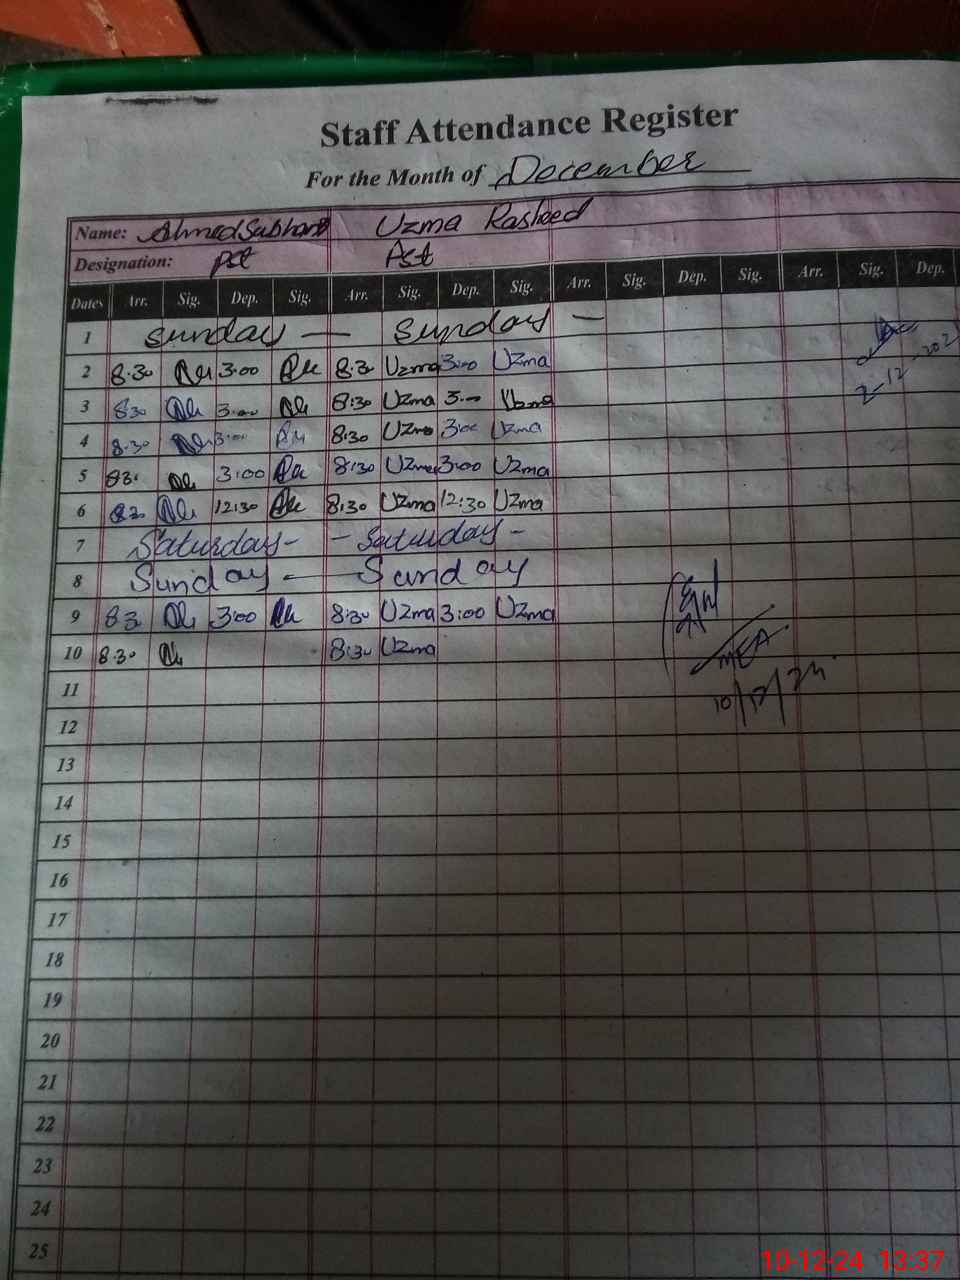 Staff Attendance Register
For the Month of December
Name: Ahmed Subhani Uzma Rasheed
Designation: PST PST
Dates Arr. Sig. Dep. Sig. Arr. Sig. Dep. Sig. Arr. Sig. Dep. Sig. Arr. Sig. Dep.
1 Sunday — Sunday —
2 8.30 3:00 8:30 Uzma 3:00 Uzma
3 8:30 3:00 8:30 Uzma 3:00 Uzma
4 8:30 3:00 8:30 Uzma 3:00 Uzma
5 8:30 3:00 8:30 Uzma 3:00 Uzma
6 8:30 12:30 8:30 Uzma 12:30 Uzma
7 Saturday - - Saturday -
8 Sunday — Sunday
9 8:30 3:00 8:30 Uzma 3:00 Uzma
10 8.30 8:30 Uzma
MEA
10/12/24
11
12
13
14
15
16
17
18
19
20
21
22
23
24
25
10-12-24 13:37